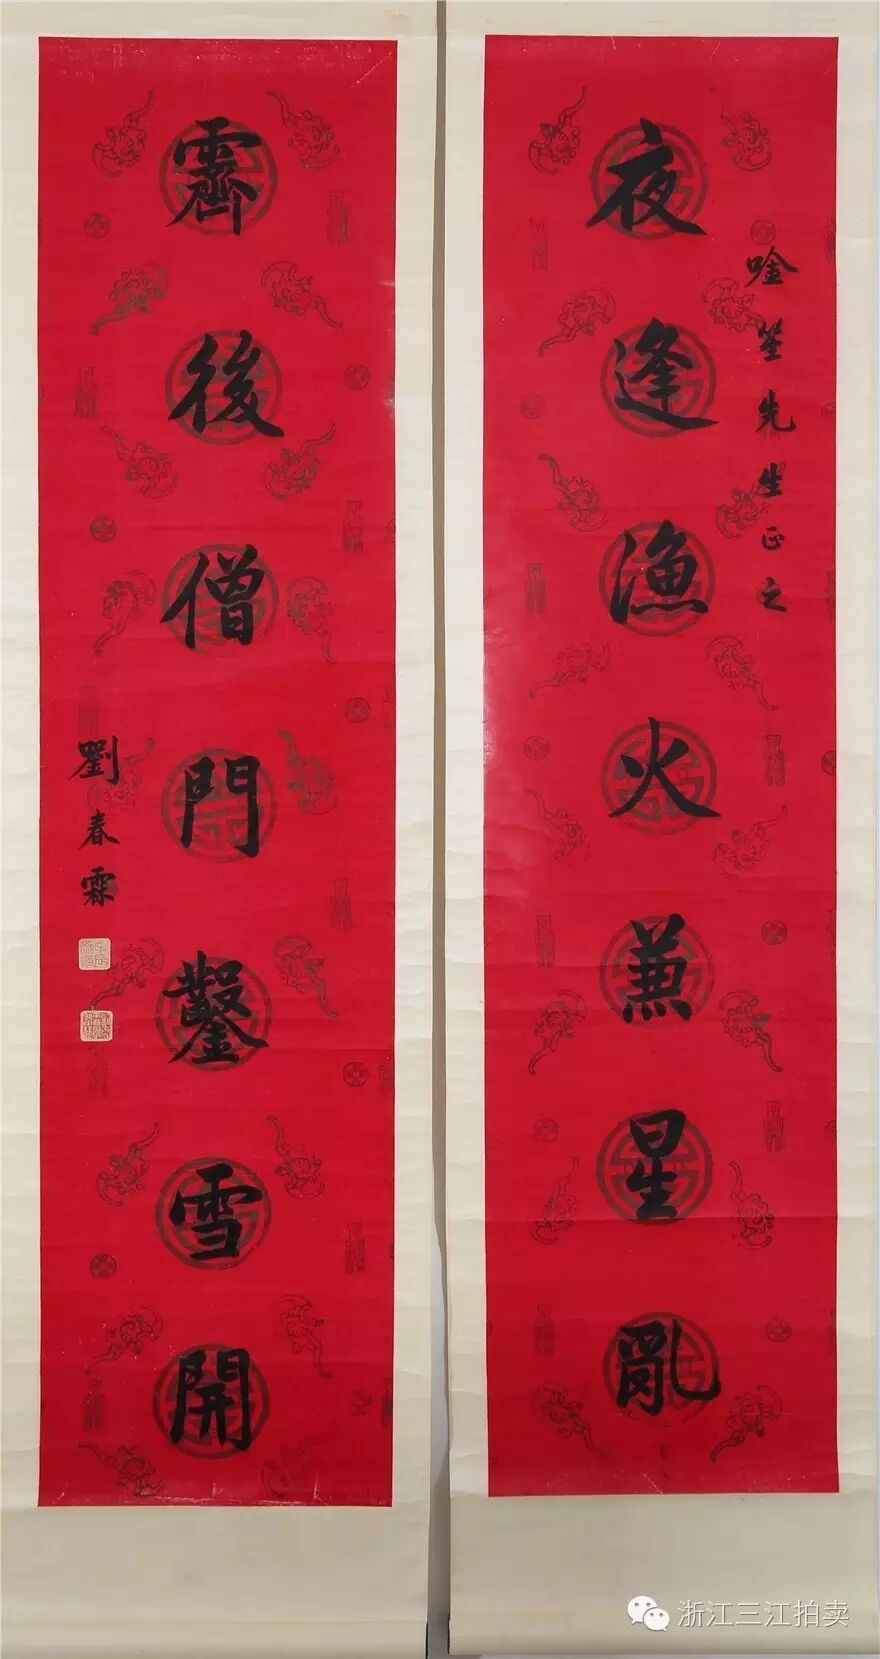 唫笙先生正之
夜逢漁火兼星亂
霽後僧門鑿雪開
劉春霖
浙江三江拍卖